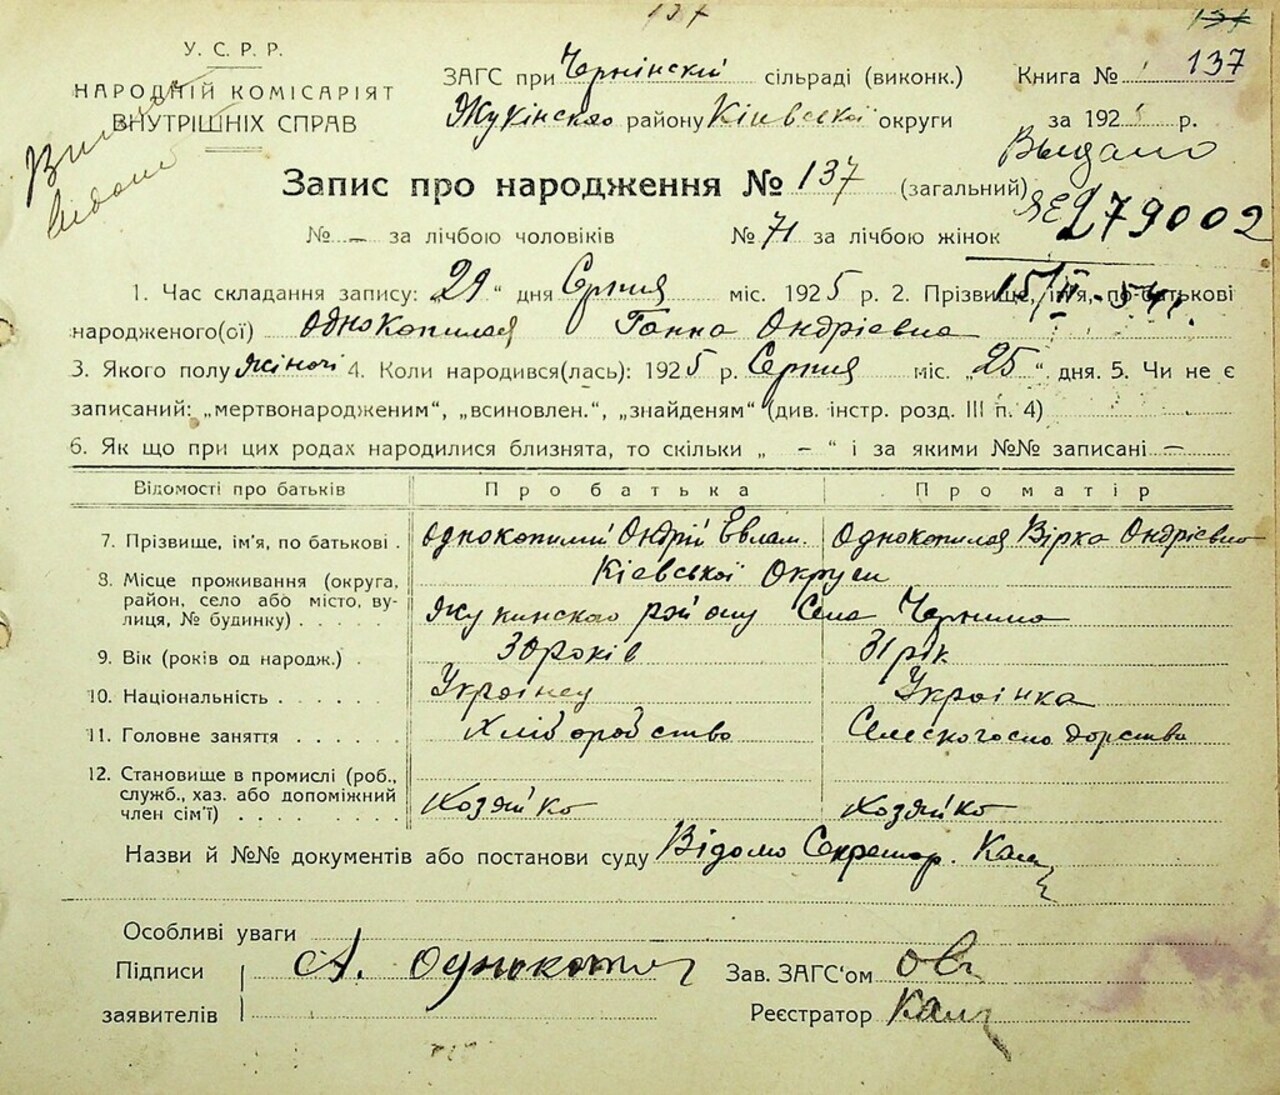 137
У. С. Р. Р.
НАРОДНІЙ КОМІСАРІЯТ
ВНУТРІШНІХ СПРАВ
ЗАГС при Чернінскій сільраді (виконк.)
Жукінскаю району Київської округи
Книга № 137
за 1925 р.
Выдано
ЯЕ 279002
Запис про народження № 137 (загальний)
№ — за лічбою чоловіків № 71 за лічбою жінок
15/II-54 г.
1. Час складання запису: „29“ дня Серпня міс. 1925 р. 2. Прізвище, ім'я, по-батькові
народженого(ої) Однокопилая Ганна Ондрієвна
3. Якого полу жіночі 4. Коли народився(лась): 1925 р. Серпня міс. „25“ дня. 5. Чи не є
записаний: „мертвонародженим“, „всиновлен.“, „знайденям“ (див. інстр. розд. III п. 4)
6. Як що при цих родах народилися близнята, то скільки „ – “ і за якими №№ записані –
Відомості про батьків Про батька Про матір
7. Прізвище, ім'я, по батькові . Однокопилий Ондрій Евлам. Однокопилая Вірка Ондрієвна
8. Місце проживання (округа, Кіевської Округи
район, село або місто, ву-
лиця, № будинку) . . . . . Жукинскаю району Села Чернина
9. Вік (років од народж.) . 30 років 31 рік
10. Національність . . . . . . Українец Українка
11. Головне заняття . . . . . . Хліборобство Селскогосподорство
12. Становище в промислі (роб.,
служб., хаз. або допоміжний
член сім'ї) . . . . . . . . Хозяйко Хозяйко
Назви й №№ документів або постанови суду Відомо Секретар.
Особливі уваги
Підписи А. Однокопил Зав. ЗАГС'ом
заявителів Реєстратор